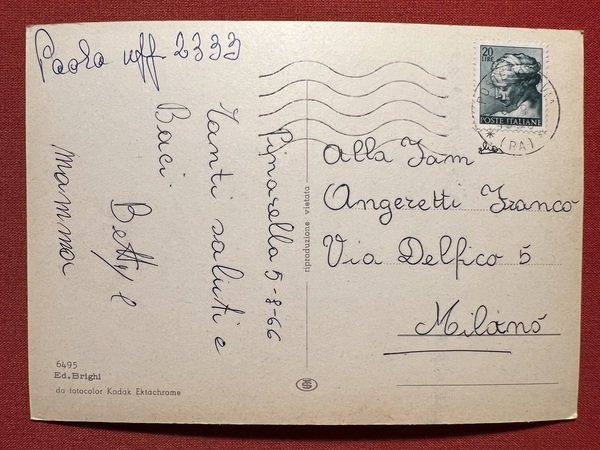 Paola uff 2333
Pinarella 5-8-66
Tanti saluti e
Baci.
Betty e
mamma
20
LIRE
POSTE ITALIANE
(RA)
Alla Fam
Angeretti Franco
Via Delfico 5
Milano
riproduzione vietata
6495
Ed. Brighi
da fotocolor Kodak Ektachrome